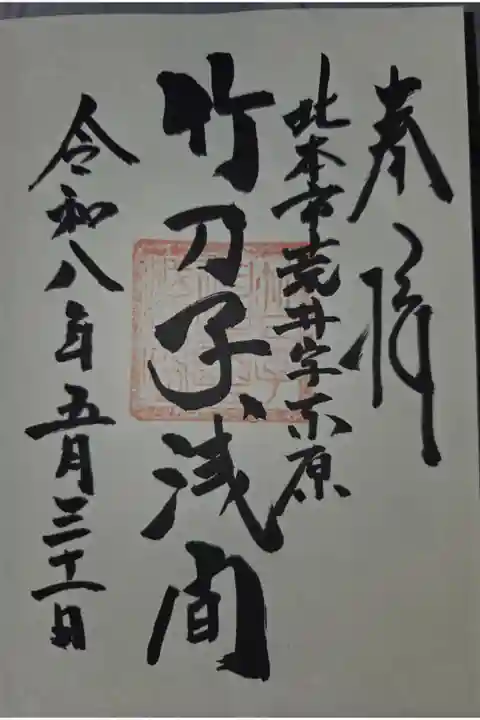 奉拝
北本市荒井字下原
竹刀子浅間
令和八年五月三十一日